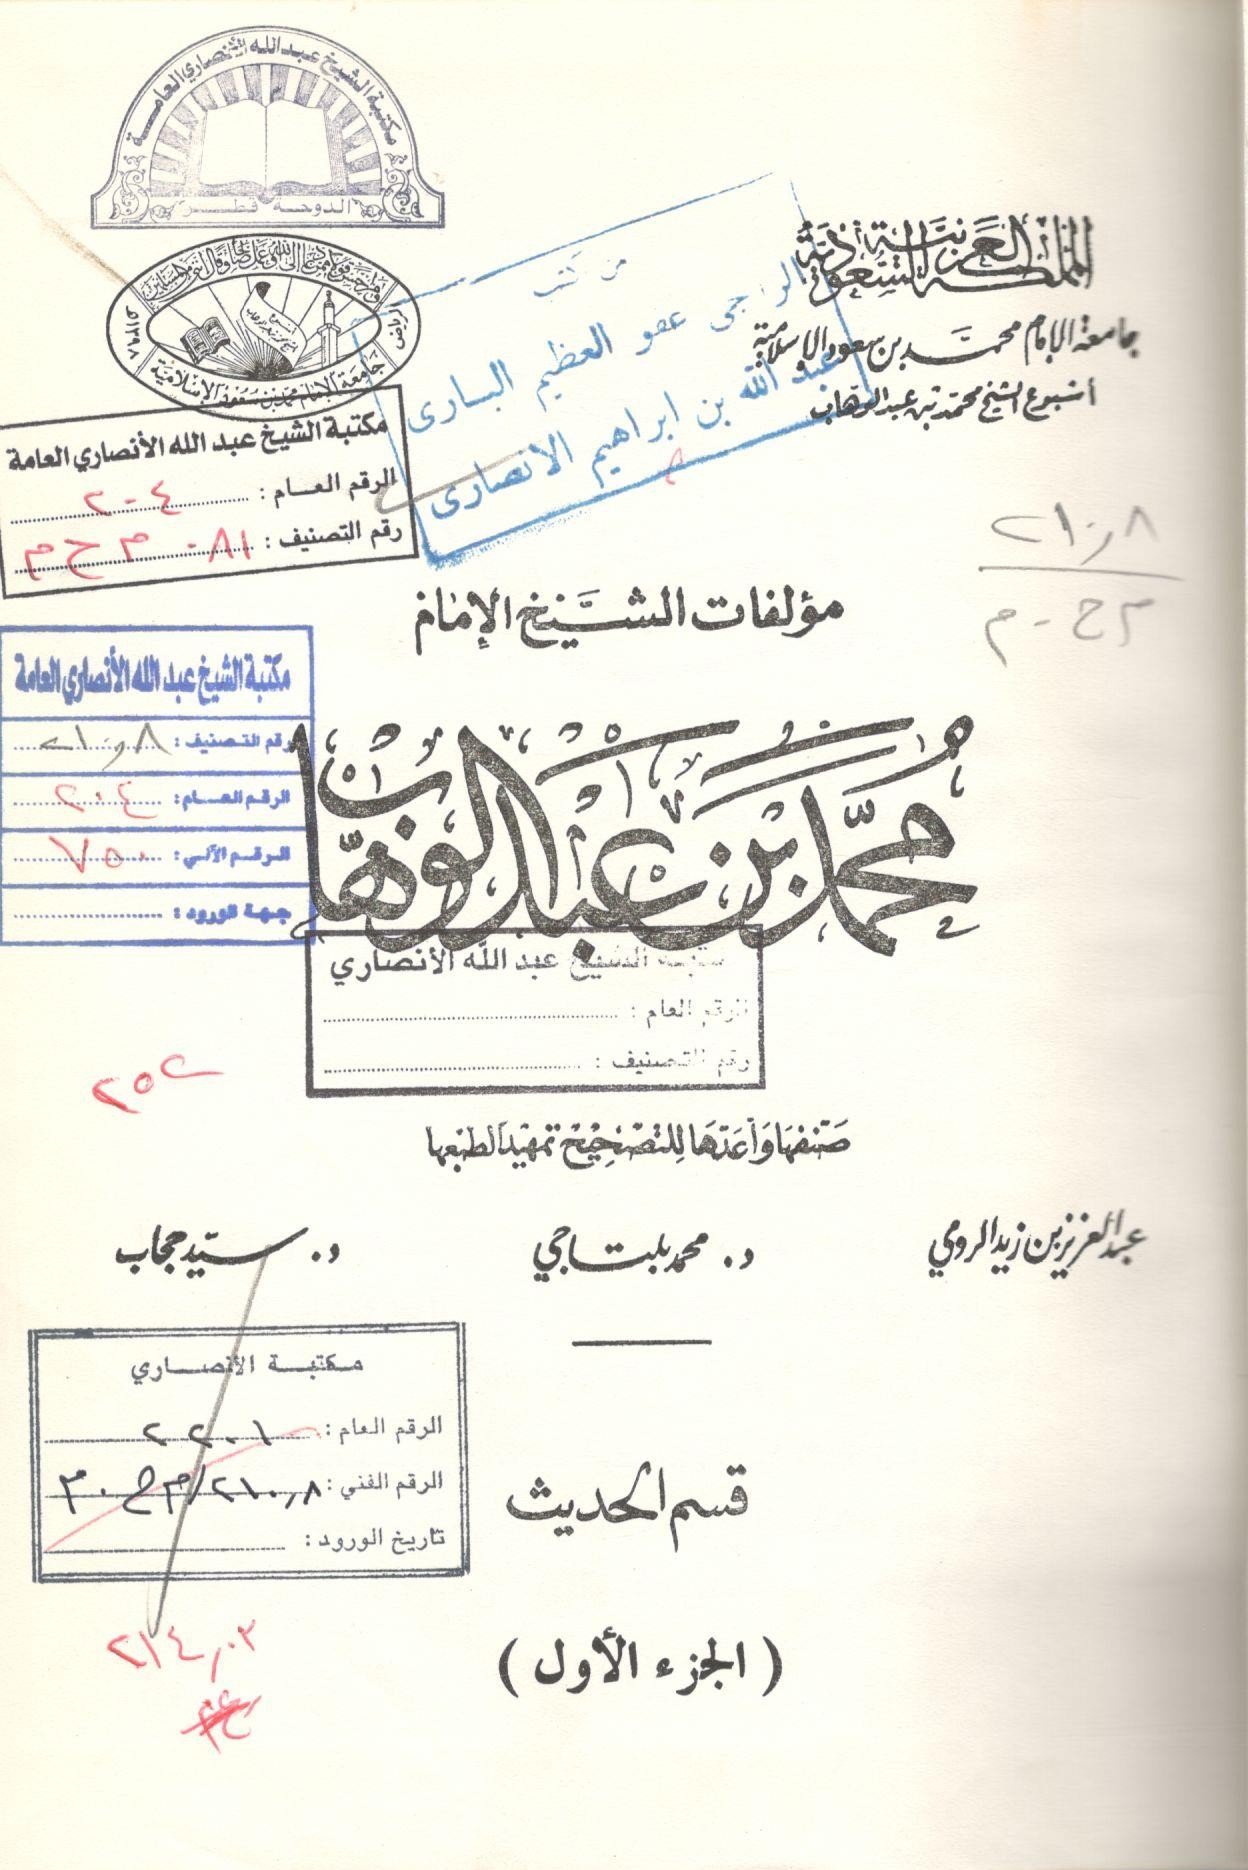 مكتبة الشيخ عبدالله الأنصاري العامة
الدوحة قطر
المملكة العربية السعودية
جامعة الإمام محمد بن سعود الإسلامية
أسبوع الشيخ محمد بن عبدالوهاب
جامعة الإمام محمد بن سعود الإسلامية
الرياض
١٣٩٨هـ
من كتب
الراجي عفو العظيم الباري
عبد الله بن ابراهيم الانصاري
مكتبة الشيخ عبد الله الأنصاري العامة
الرقم العام : ٢٠٤
رقم التصنيف : ٠٨١ م ح م
٢١٠,٨
م ح - م
مؤلفات الشيخ الإمام
محمد بن عبد الوهاب
مكتبة الشيخ عبد الله الأنصاري العامة
رقم التصنيف : ٢١٠,٨
الرقم العام : ٢٠٤
الرقم الآلي : ٧٥٠
جهة الورود :
مكتبة الشيخ عبد الله الأنصاري
الرقم العام :
رقم التصنيف :
٢٥٢
صنفها وأعدها للتصحيح تمهيدا لطبعها
عبد العزيز بن زيد الرومي
د. محمد بلتاجي
د. سيد حجاب
مكتبة الأنصاري
الرقم العام : ٢٢٠١
الرقم الفني : ٢١٠,٨/م ح ٣٠
تاريخ الورود :
قسم الحديث
( الجزء الأول )
٢١٤,٠٢